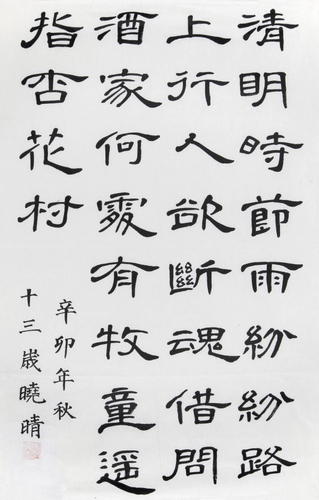 清明時節雨紛紛路
上行人欲斷魂借問
酒家何處有牧童遥
指杏花村
辛卯年秋
十三歲曉晴